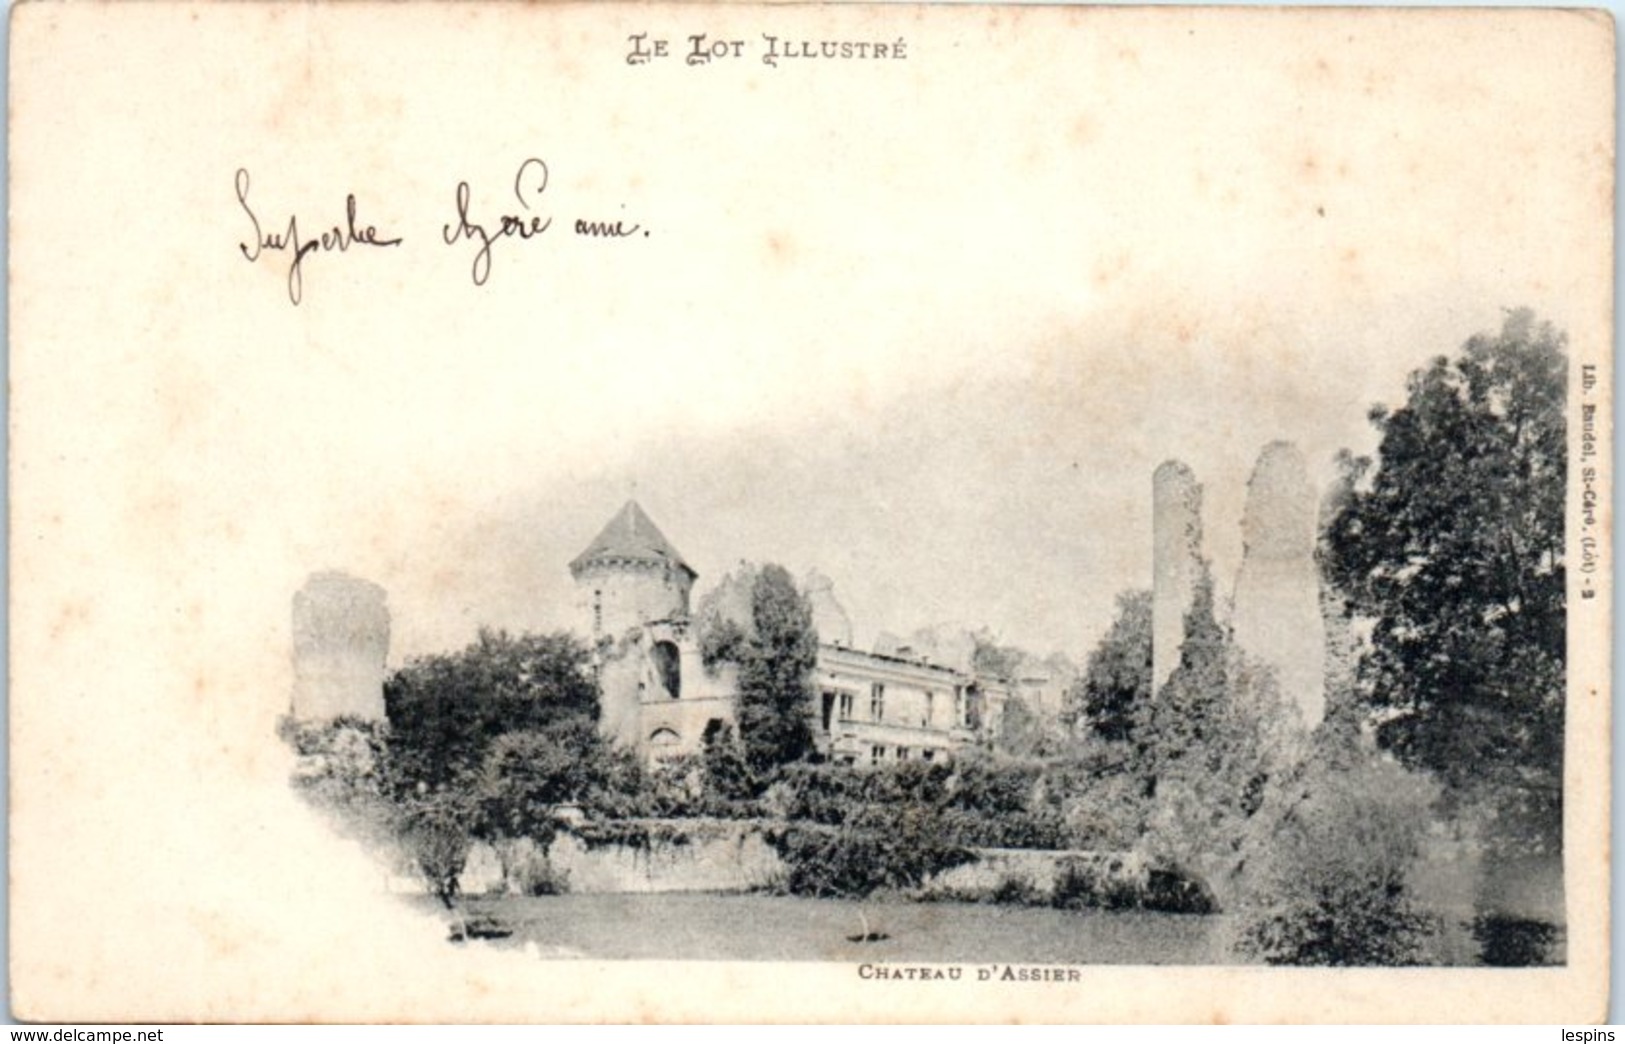 LE LOT ILLUSTRÉ
Superbe ami.
Lib. Baudel, St-Céré. (Lot) - 2
CHATEAU D'ASSIER
www.delcampe.net
lespins